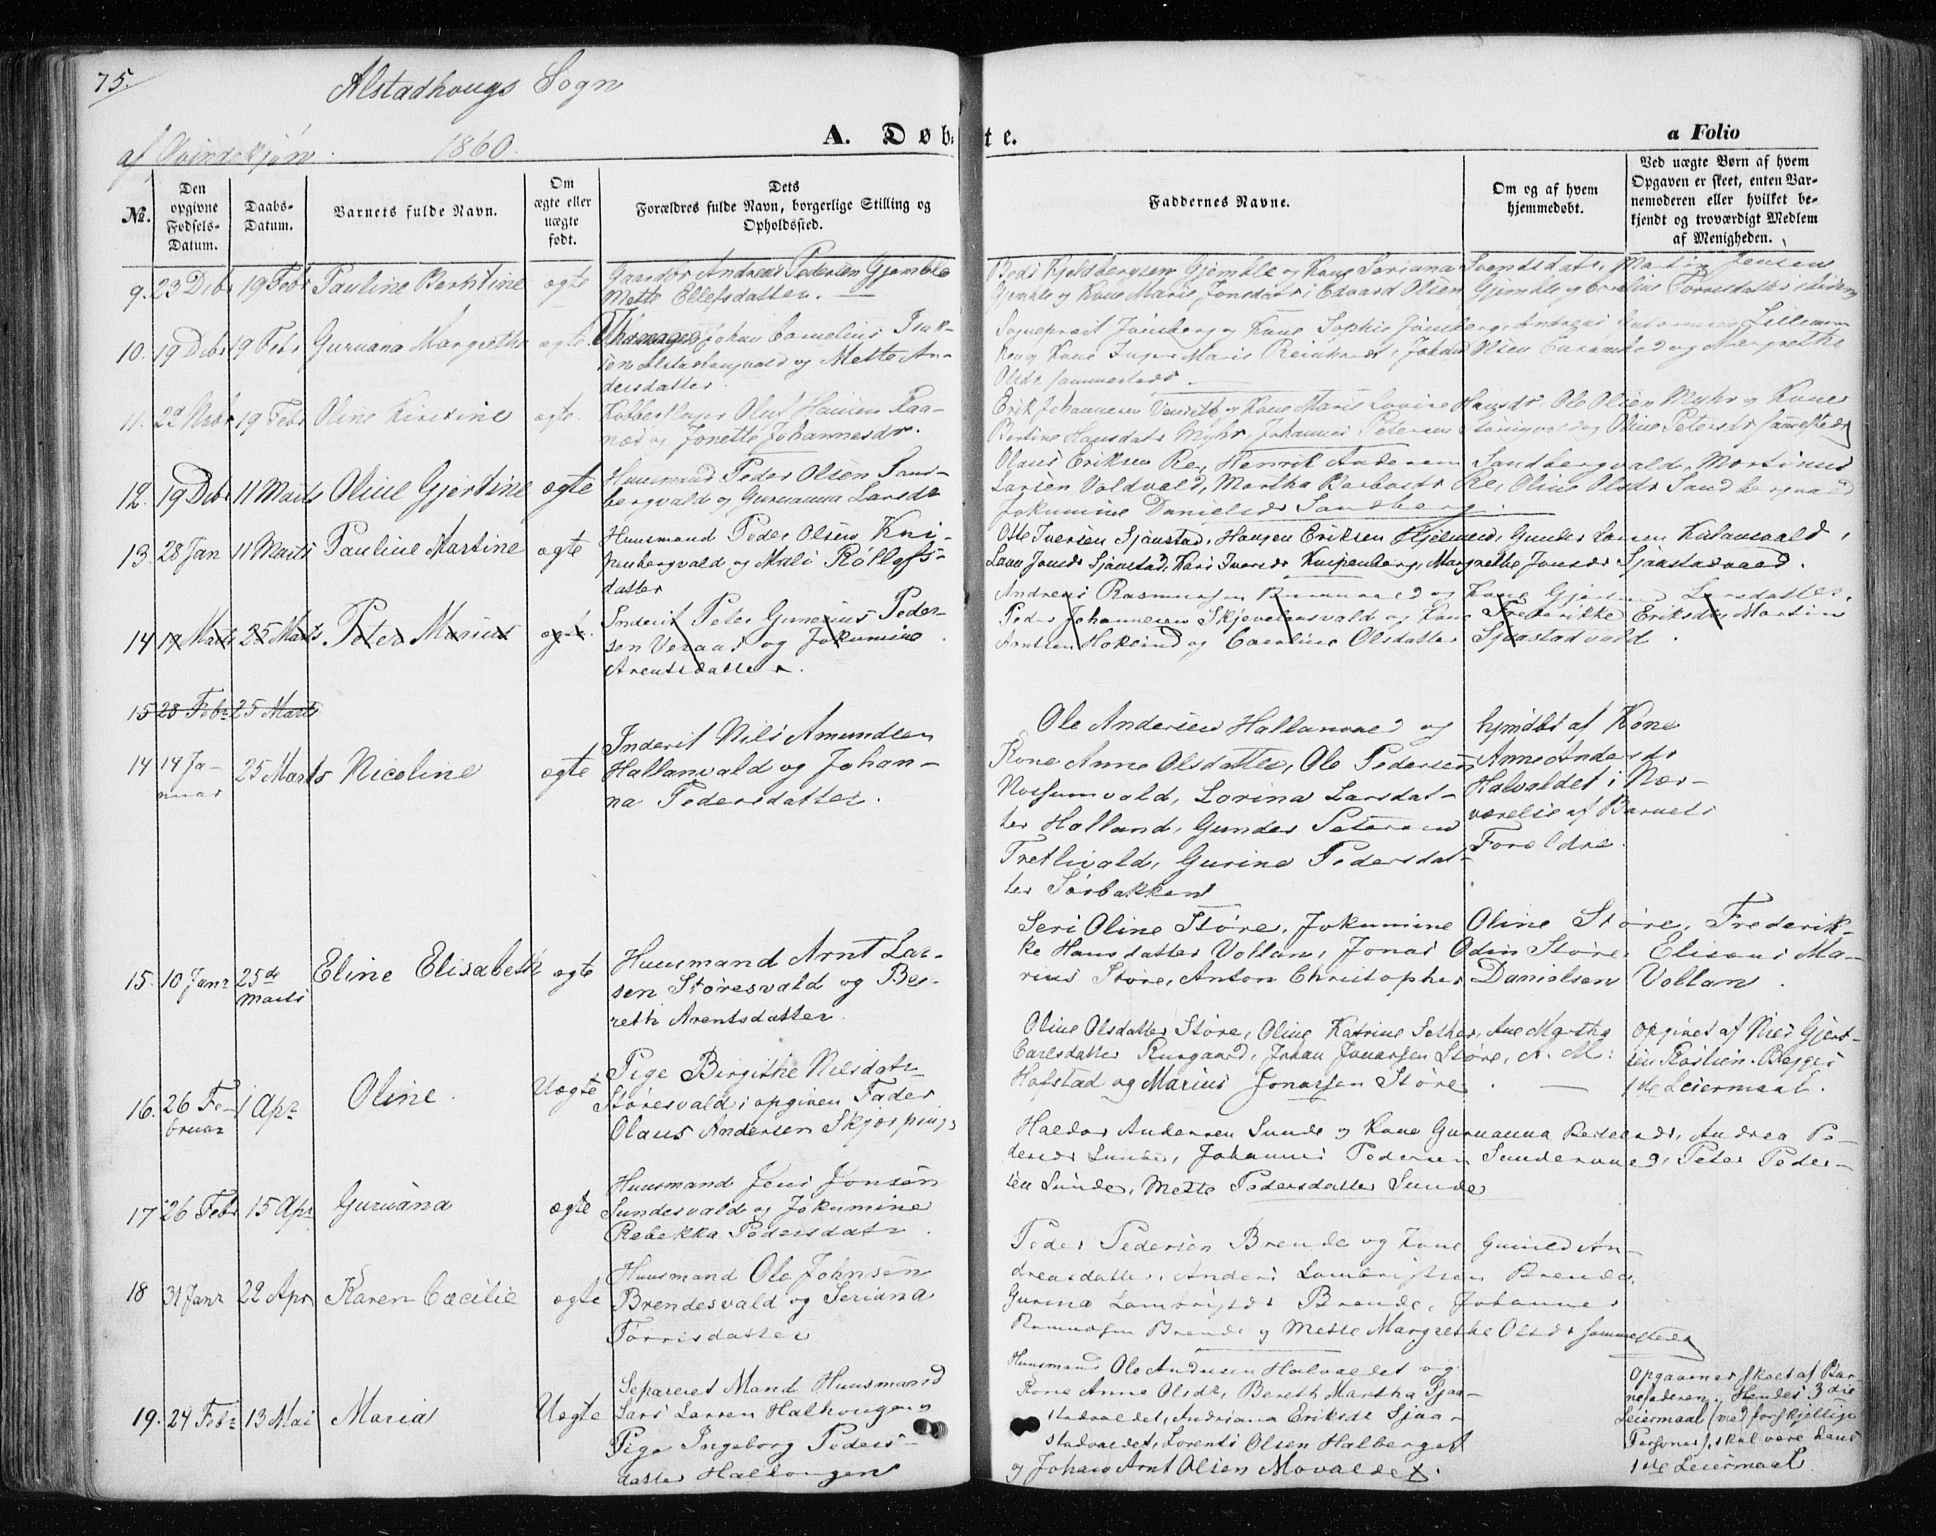 75.
Alstadhougs Sogn
af Qvindekjøn. 1860.
A. Døbte.
a Folio
No.
Den opgivne Fødsels-Datum.
Daabs-Datum.
Barnets fulde Navn.
Om ægte eller uægte født.
Dets Forældres fulde Navn, borgerlige Stilling og Opholdssted.
Faddernes Navne.
Om og af hvem hjemmedøbt.
Ved uægte Børn af hvem Opgaven er skeet, enten Barnemoderen eller hvilket bekjendt og troværdigt Medlem af Menigheden.
9. 23 Debr 19 Febr Pauline Berntine ægte
Gaardbr Andreas Pedersen Gjemble
Mette Ellefsdatter.
Kjeldbergsen Gjemble og Kone Seriana Svendsdatr, Martin Jensen
Gjemble og Kone Maria Jonsdatr, Edvard Olsen Gjemble og
10. 19 Debr 19 Febr Guruana Margrethe ægte.
Johan Cornelius Isak-
sen Alstadhaugvald og Mette An-
dersdatter.
Sogneprest Jønsberg og Kone Sophie Jønsberg, Andreas
og Kone Inger Maria Reinhardt, Johan Olsen og Margrethe
Olsdr sammesteds
11. 29 Novbr 19 Febr Oline Kirstine ægte.
Kobberslager Oluf Hansen Raa-
næs og Jonette Johannesdr.
Erik Johannesen og Kone Maria Lovise Hansdr, Ole Olsen Myhr og Kone
Bertine Hansdatr Myhr, Johannes Petersen og Oline Petersdr sammesteds
12. 19 Debr 11 Marts Oline Gjertine ægte
Huusmand Peder Olsen Sand-
bergvald og Guruanna Larsdr
Olaus Eriksen Re, Henrik Andersen Sandbergvald, Martinus
Larsen Voldvald, Martha Re, Oline Olsdr Sandbergvald
Jokumine Danielsdr Sandberg.
13. 28 Jan 11 Marts Pauline Martine ægte
Huusmand Peder Olsen Kni-
penbergvald og Mali Rollofs-
datter
Otte Iversen Sjønstad, Hansen Eriksen Hjelmed, Gunder Larsen
Jonsdr Sjønstad, Kari Iversdr Knipenberg, Margrethe Jonsdr Sjaastadvald.
14 17 Marts 25 Marts Peter Marius ægte.
Inderst Peter Gunerius Peder-
sen Veraas og Jokumine
Arentsdatter.
Andreas Rasmussen og Kone Larsdatter,
Peder Johannesen og Kone Frederikke Eriksdr, Martin
Arntsen og Caroline Olsdatter Sjaastadvald.
15 28 Febr 25 Marts
14 14 Ja-
nuar 25 Marts Nicoline ægte
Inderst Nils Amundsen
Hallanvald og Johan-
na Pedersdatter.
Ole Andersen Hallanvald og
Kone Anne Olsdatter, Ole Pedersen
Nossumvald, Lorina Larsdat-
ter Halland, Gunder Petersen
Tretlivald, Gurine Pedersdat-
ter Sørbakken
hjmdøbt af Kone
Anne Andersdr
Halvaldet i Nær-
værelse af Barnets
Foreldre.
15. 10 Janr 25de
Marts Eline Elisabeth ægte
Huusmand Arnt Lar-
sen Støresvald og Be-
reth Arentsdatter.
Seri Oline Støre, Jokumine Oline Støre, Frederik-
ke Hansdatter Vollan, Jonas Odin Støre, Eliseus Ma-
rius Støre, Anton Christopher Danielsen Vollan.
16. 26 Fe-
bruar 1 Apr Oline. Uægte
Pige Birgithe Nilsdatr
Støresvald; opgiven Fader
Olaus Andersen Skjerping
Oline Olsdatter Støre, Oline Katrine Sether, Ane Martha
Carlsdatter Rusgaard, Johan Jonassen Støre, A. M:
Hofstad og Marius Jonassen Støre.
opgivet af Niels Gjert-
sen Rostien. Begges
1ste Leiermaal.
17 26 Febr 15 Apr Guruana ægte
Huusmand Jens Jonsen
Sundesvald og Jokumine
Rebekka Pedersdatr.
Haldor Andersen Sunde og Kone Guruanna, Andrea Pe-
dersdr Sunde, Johannes Pedersen Sundesvald, Peter Peder-
sen Sunde, Mette Pedersdatter Sunde
18 31 Janr 22 Apr Karen Cæcilie ægte
Huusmand Ole Johnsen
Brendesvald og Seriana
Torrisdatter
Peder Pedersen Brende og Kone Gunild An-
dreasdatter, Anders Lambrigtsen Brende,
Gurina Lambrigtsdr Brende, Johannes
Rasmussen Brende og Mette Margrethe Olsdr sammesteds
19. 24 Febr 13 Mai Maria Uægte
Separeret Mand Huusmand
Lars Larsen Halhougen
Pige Ingeborg Peders-
datter Halhougen
Huusmand Ole Andersen Halvaldet og
Kone Anne Olsdr, Bereth Martha Sjaa-
stadvaldet, Andriana Eriksdr Sjaa-
stadvaldet, Lorents Olsen Halberget
og Johan Arnt Olsen Movaldet.
Opgaven er skeet af Bar-
nefaderen. Hendes 3die
Leiermaal (med forskjellige
Personer), skal være hans
1ste Leiermaal